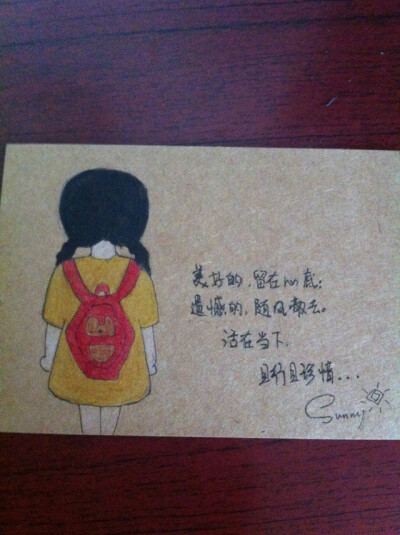 美好的，留在心底；
遗憾的，随风散去。
活在当下，
且行且珍惜...
Sunny